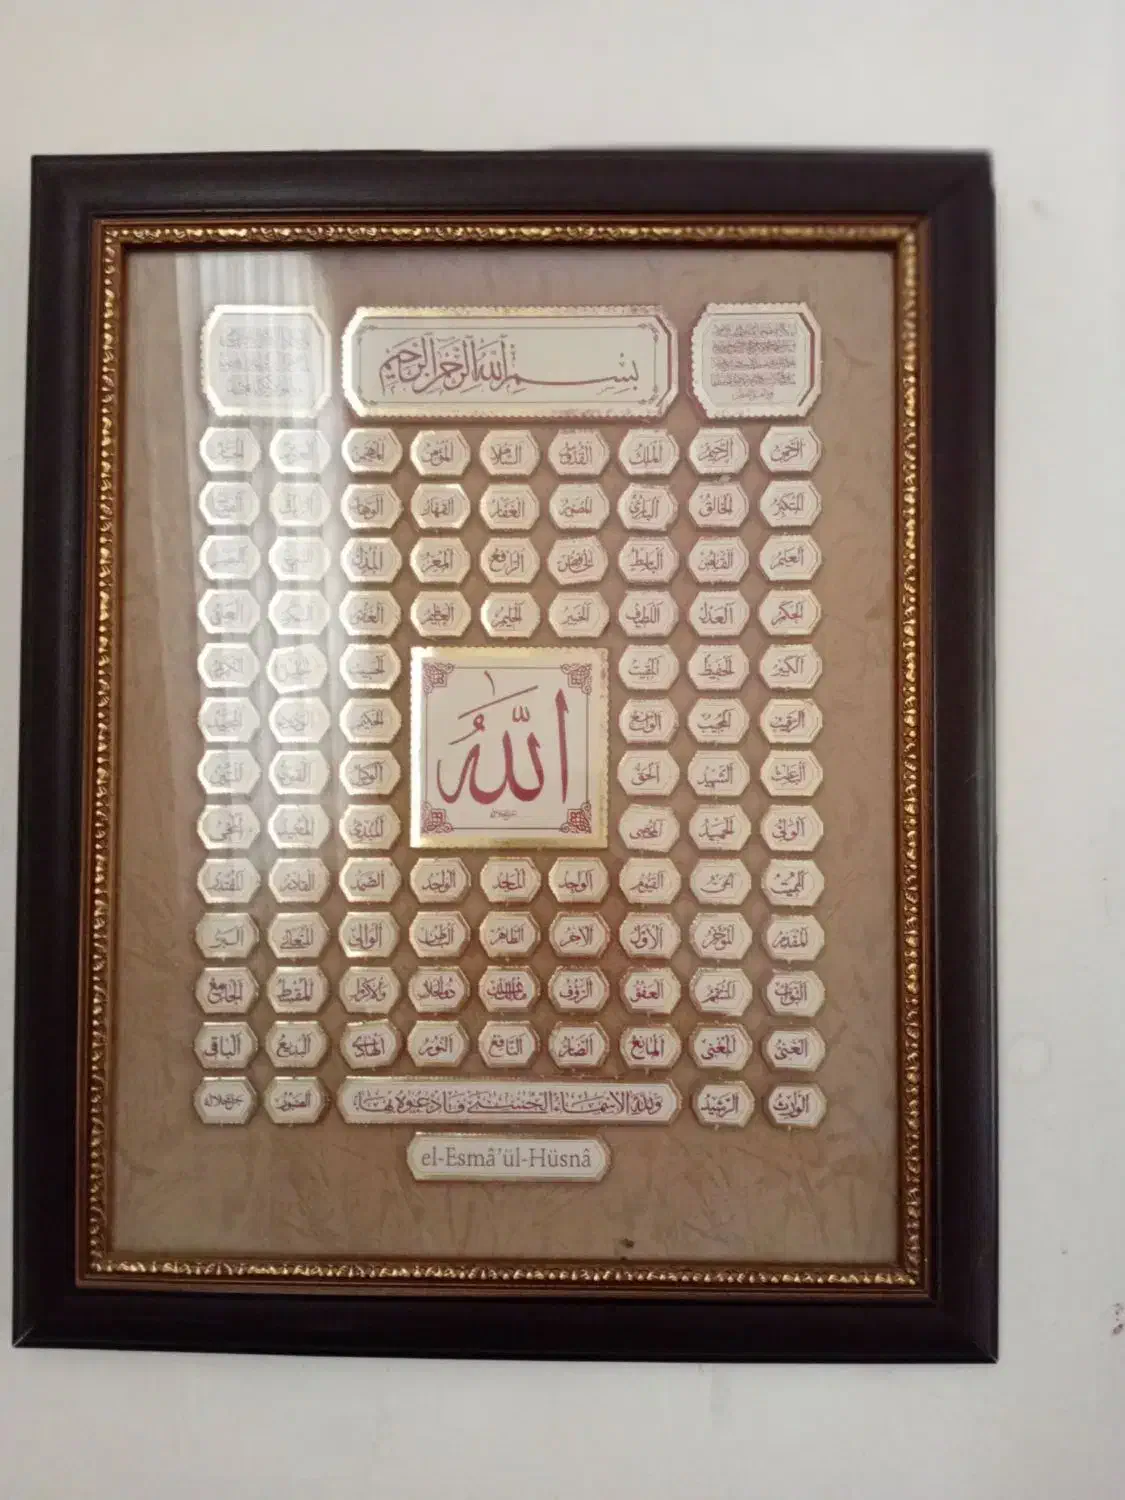 بسم الله الرحمن الرحيم
الرحمن الرحيم الملك القدوس السلام المؤمن المهيمن العزيز الجبار
المتكبر الخالق البارئ المصور الغفار القهار الوهاب الرزاق الفتاح
العليم القابض الباسط الخافض الرافع المعز المذل السميع البصير
الحكم العدل اللطيف الخبير الحليم العظيم الغفور الشكور العلي
الكبير الحفيظ المقيت الحسيب الجليل الكريم
الله
جل جلاله
الرقيب المجيب الواسع الحكيم الودود المجيد
الباعث الشهيد الحق الوكيل القوي المتين
الولي الحميد المحصي المبدئ المعيد المحيي
المميت الحي القيوم الواجد الماجد الواحد الصمد القادر المقتدر
المقدم المؤخر الأول الآخر الظاهر الباطن الوالي المتعالي البر
التواب المنتقم العفو الرؤف مالك الملك ذو الجلال والاكرام المقسط الجامع
الغني المغني المانع الضار النافع النور الهادي البديع الباقي
الوارث الرشيد ولله الأسماء الحسنى فادعوه بها الصبور جل جلاله
el-Esmâ'ül-Hüsnâ